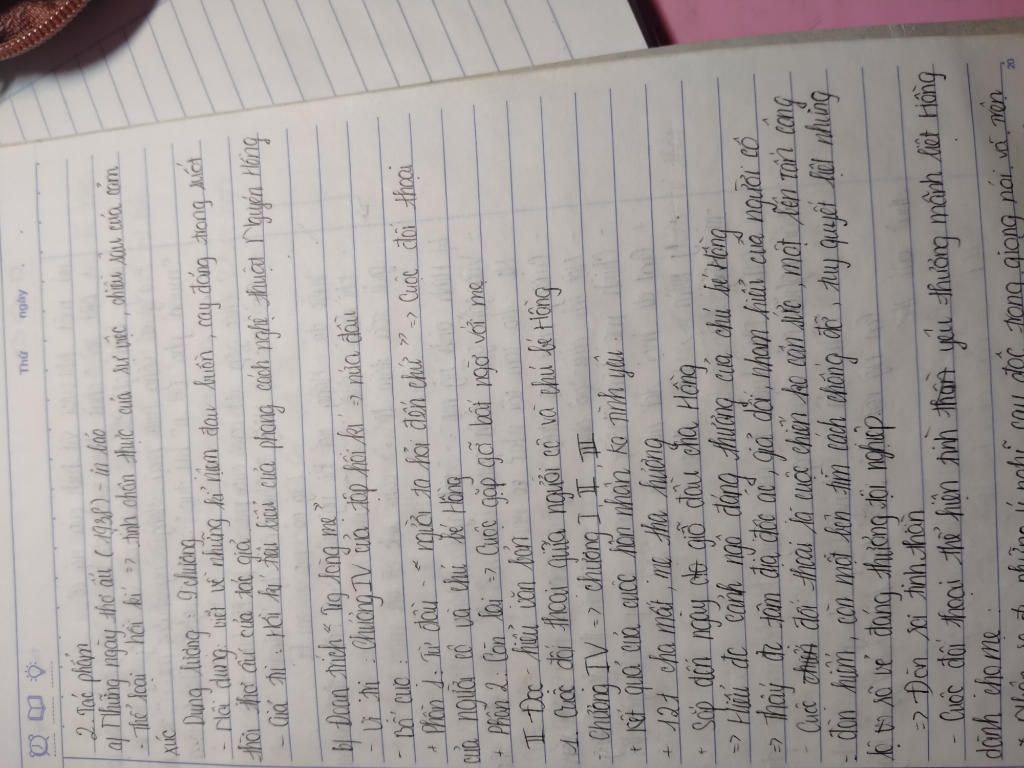 Thứ ngày
2. Tác phẩm
a) Những ngày thơ ấu (1938) - in báo
- Thể loại: hồi kí => tính chân thực của sự việc, chiều sâu của cảm
xúc
- Dung lượng: 9 chương
- Nội dung: viết về những kỉ niệm đau buồn, cay đắng trong suốt
thời thơ ấu của tác giả
- Giá trị: Hồi kí tiêu biểu của phong cách nghệ thuật Nguyên Hồng
b) Đoạn trích "Trg lòng mẹ"
- Vị trí: chương IV của tập hồi kí => nửa đầu
- Bố cục:
+ Phần 1: Từ đầu - " người ta hỏi đến chứ " => Cuộc đối thoại
của người cô và chú bé Hồng
+ Phần 2: Còn lại => Cuộc gặp gỡ bất ngờ với mẹ
II Đọc - hiểu văn bản
1. Cuộc đối thoại giữa người cô và chú bé Hồng
- Chương IV => chương I, II, III
+ Kết quả của cuộc hôn nhân ko tình yêu.
+ 12t cha mất, mẹ tha hương
+ Sắp đến ngày giỗ đầu cha Hồng
=> Hiểu đc cảnh ngộ đáng thương của chú bé Hồng
=> thấy đc tâm địa độc ác, giả dối, nham hiểm của người cô
- Cuộc đối thoại là cuộc chiến ko cân sức, một bên tấn công
dồn hiểm, còn một bên tìm cách chống đỡ, tuy quyết liệt nhưng
lộ ra vẻ đáng thương, tội nghiệp.
=> Đòn roi tinh thần
- Cuộc đối thoại thể hiện tình yêu thương mãnh liệt Hồng
dành cho mẹ.
những ý nghĩ cay độc trong giọng nói và trên
20